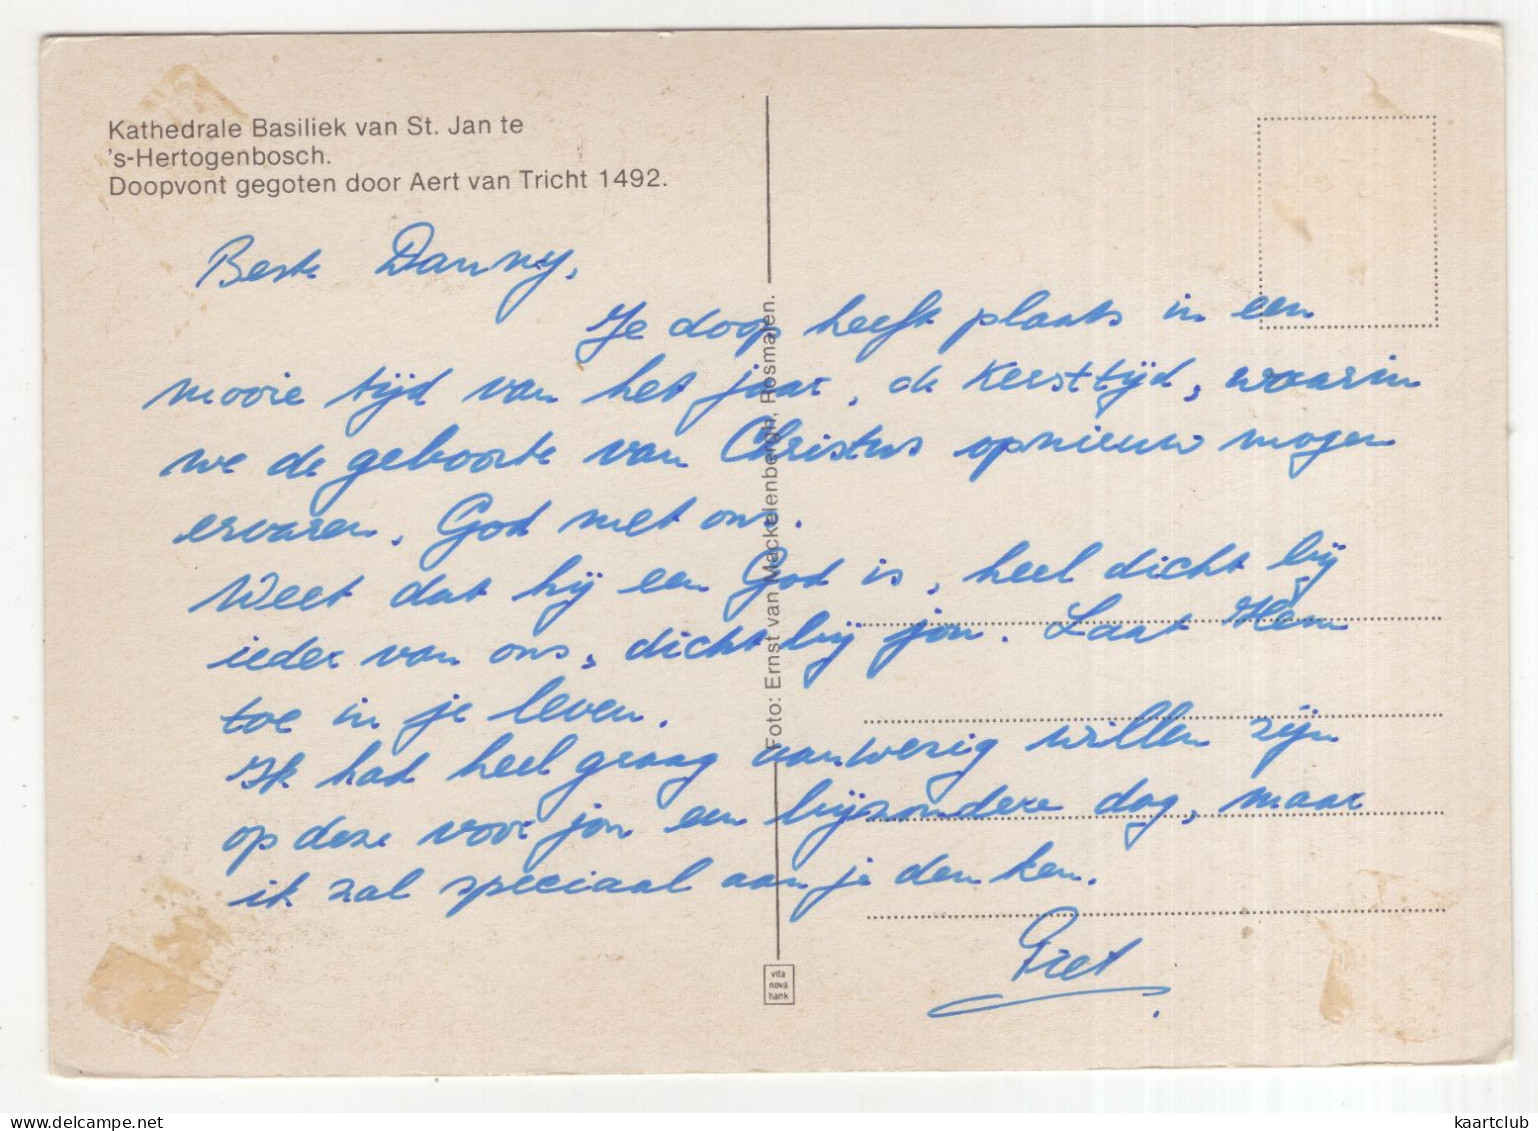 Kathedrale Basiliek van St. Jan te
's-Hertogenbosch.
Doopvont gegoten door Aert van Tricht 1492.
Beste Danny,
Je doop heeft plaats in een
mooie tijd van het jaar, de Kersttijd, waarin
we de geboorte van Christus opnieuw mogen
ervaren. God met ons.
Weet dat hij een God is, heel dicht bij
ieder van ons, dicht bij jou. Laat Hem
toe in je leven.
Ik had heel graag aanwezig willen zijn
op deze voor jou een bijzondere dag, maar
ik zal speciaal aan je denken.
Piet
Foto: Ernst van Mackelenbergh, Rosmalen.
vita
nova
hank
kaartclub